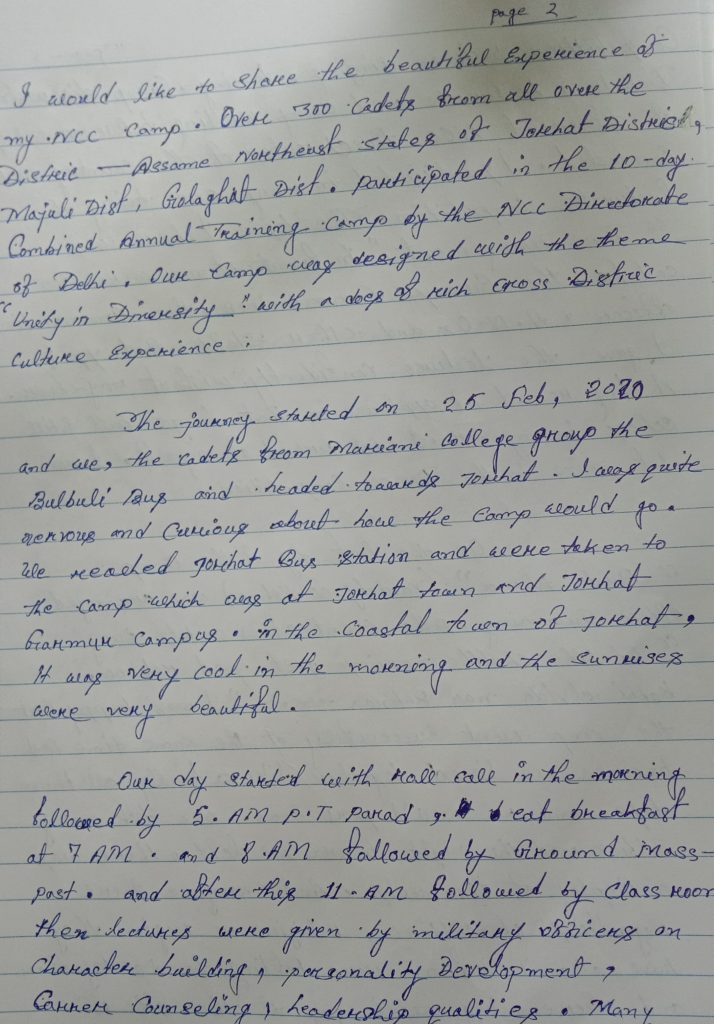 page 2
I would like to share the beautiful Experience of
my NCC Camp. Over 300 Cadets from all over the
Distric — Assame Northeast States of Jorhat District,
Majuli Dist, Golaghat Dist. participated in the 10-day
Combined Annual Training Camp by the NCC Directorate
of Delhi. Our Camp was designed with the theme
"Unity in Diversity" with a does of rich cross Distric
Culture Experience.
The journey started on 25 Feb, 2020
and we, the cadets from Mariani College group the
Bulbuli Bus and headed towards Jorhat. I was quite
nervous and Curious about how the Camp would go.
We reached Jorhat Bus Station and were taken to
the Camp which was at Jorhat town and Jorhat
Garmur Campus. in the Coastal town of Jorhat,
It was very cool in the morning and the sunrises
were very beautiful.
Our day started with Roll call in the morning
followed by 5.AM P.T Parad, eat breakfast
at 7 AM. and 8.AM followed by Ground mass-
past. and after this 11.AM followed by Class room
then lectures were given by military officers on
Character building, personality Development,
Carrer Counseling, Leadership qualities. Many